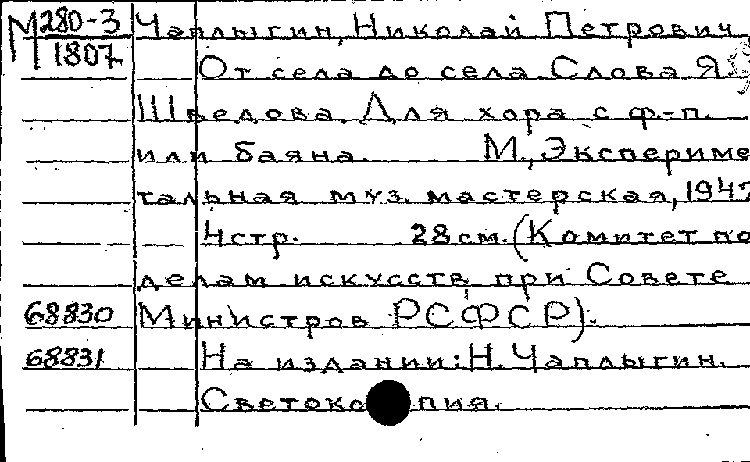 М 280-3 Чаплыгин, Николай Петрович
1807 От села до села. Слова Я.
Шведова. Для хора с ф.-п.
или баяна. М., Эксперимен
тальная муз. мастерская, 1947
4 стр. 28 см. (Комитет по
делам искусств при Совете
68830 Министров РСФСР).
68831 На издании: Н. Чаплыгин.
Светокопия.